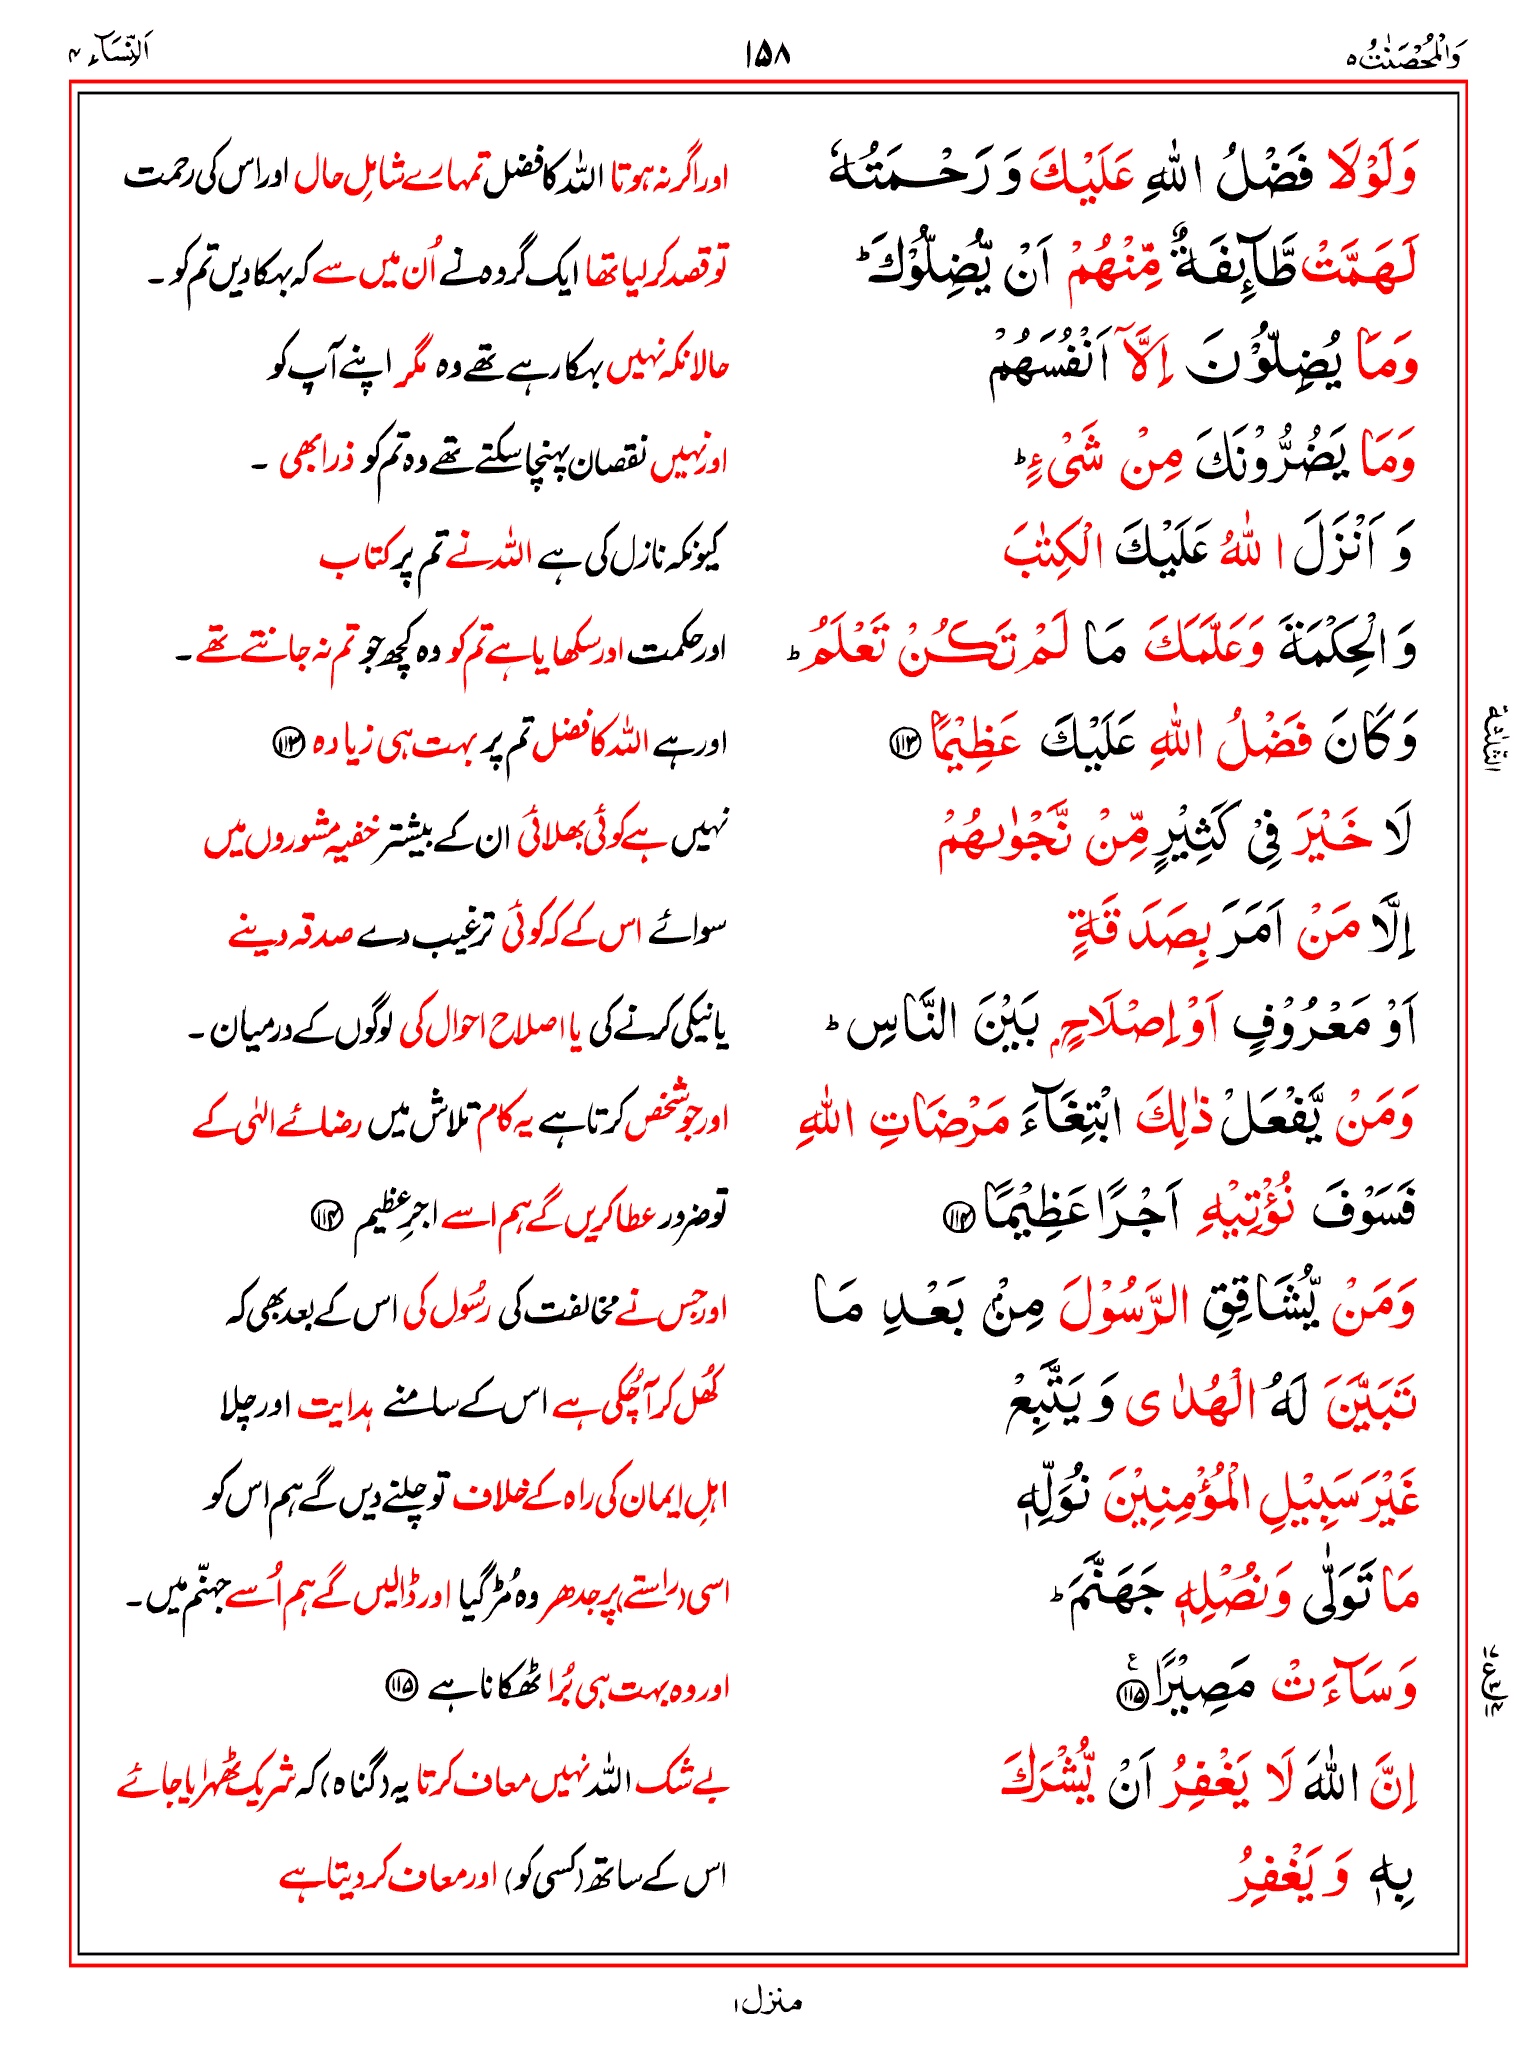 وَالْمُحْصَنٰتُ ۵ ۱۵۸ اَلنِّسَآء ۴
وَلَوْلَا فَضْلُ اللّٰهِ عَلَيْكَ وَ رَحْمَتُهٗ اور اگر نہ ہوتا اللہ کا فضل تمہارے شاملِ حال اور اس کی رحمت
لَهَمَّتْ طَّآئِفَةٌ مِّنْهُمْ اَنْ يُّضِلُّوْكَ ؕ تو قصد کر لیا تھا ایک گروہ نے اُن میں سے کہ بہکا دیں تم کو ۔
وَمَا يُضِلُّوْنَ اِلَّآ اَنْفُسَهُمْ حالانکہ نہیں بہکا رہے تھے وہ مگر اپنے آپ کو
وَمَا يَضُرُّوْنَكَ مِنْ شَىْءٍ ؕ اور نہیں نقصان پہنچا سکتے تھے وہ تم کو ذرا بھی ۔
وَ اَنْزَلَ اللّٰهُ عَلَيْكَ الْكِتٰبَ کیونکہ نازل کی ہے اللہ نے تم پر کتاب
وَ الْحِكْمَةَ وَعَلَّمَكَ مَا لَمْ تَكُنْ تَعْلَمُ ؕ اور حکمت اور سکھایا ہے تم کو وہ کچھ جو تم نہ جانتے تھے ۔
وَكَانَ فَضْلُ اللّٰهِ عَلَيْكَ عَظِيْمًا ۱۱۳ اور ہے اللہ کا فضل تم پر بہت ہی زیادہ ۱۱۳
لَا خَيْرَ فِىْ كَثِيْرٍ مِّنْ نَّجْوٰىهُمْ نہیں ہے کوئی بھلائی ان کے بیشتر خفیہ مشوروں میں
اِلَّا مَنْ اَمَرَ بِصَدَقَةٍ سوائے اس کے کہ کوئی ترغیب دے صدقہ دینے
اَوْ مَعْرُوْفٍ اَوْ اِصْلَاحٍۢ بَيْنَ النَّاسِ ؕ یا نیکی کرنے کی یا اصلاح احوال کی لوگوں کے درمیان ۔
وَمَنْ يَّفْعَلْ ذٰلِكَ ابْتِغَآءَ مَرْضَاتِ اللّٰهِ اور جو شخص کرتا ہے یہ کام تلاش میں رضائے الٰہی کے
فَسَوْفَ نُؤْتِيْهِ اَجْرًا عَظِيْمًا ۱۱۴ تو ضرور عطا کریں گے ہم اسے اجرِ عظیم ۱۱۴
وَمَنْ يُّشَاقِقِ الرَّسُوْلَ مِنْۢ بَعْدِ مَا اور جس نے مخالفت کی رسُول کی اس کے بعد بھی کہ
تَبَيَّنَ لَهُ الْهُدٰى وَ يَتَّبِعْ کُھل کر آچُکی ہے اس کے سامنے ہدایت اور چلا
غَيْرَ سَبِيْلِ الْمُؤْمِنِيْنَ نُوَلِّهٖ اہلِ ایمان کی راہ کے خلاف تو چلنے دیں گے ہم اس کو
مَا تَوَلّٰى وَنُصْلِهٖ جَهَنَّمَ ؕ اسی (راستے) پر جدھر وہ مُڑ گیا اور ڈالیں گے ہم اُسے جہنّم میں ۔
وَسَآءَتْ مَصِيْرًا ۱۱۵ ع اور وہ بہت ہی بُرا ٹھکانا ہے ۱۱۵
اِنَّ اللّٰهَ لَا يَغْفِرُ اَنْ يُّشْرَكَ بے شک اللہ نہیں معاف کرتا یہ (گناہ) کہ شریک ٹھہرایا جائے
بِهٖ وَ يَغْفِرُ اس کے ساتھ (کسی کو) اور معاف کر دیتا ہے
منزل ۱